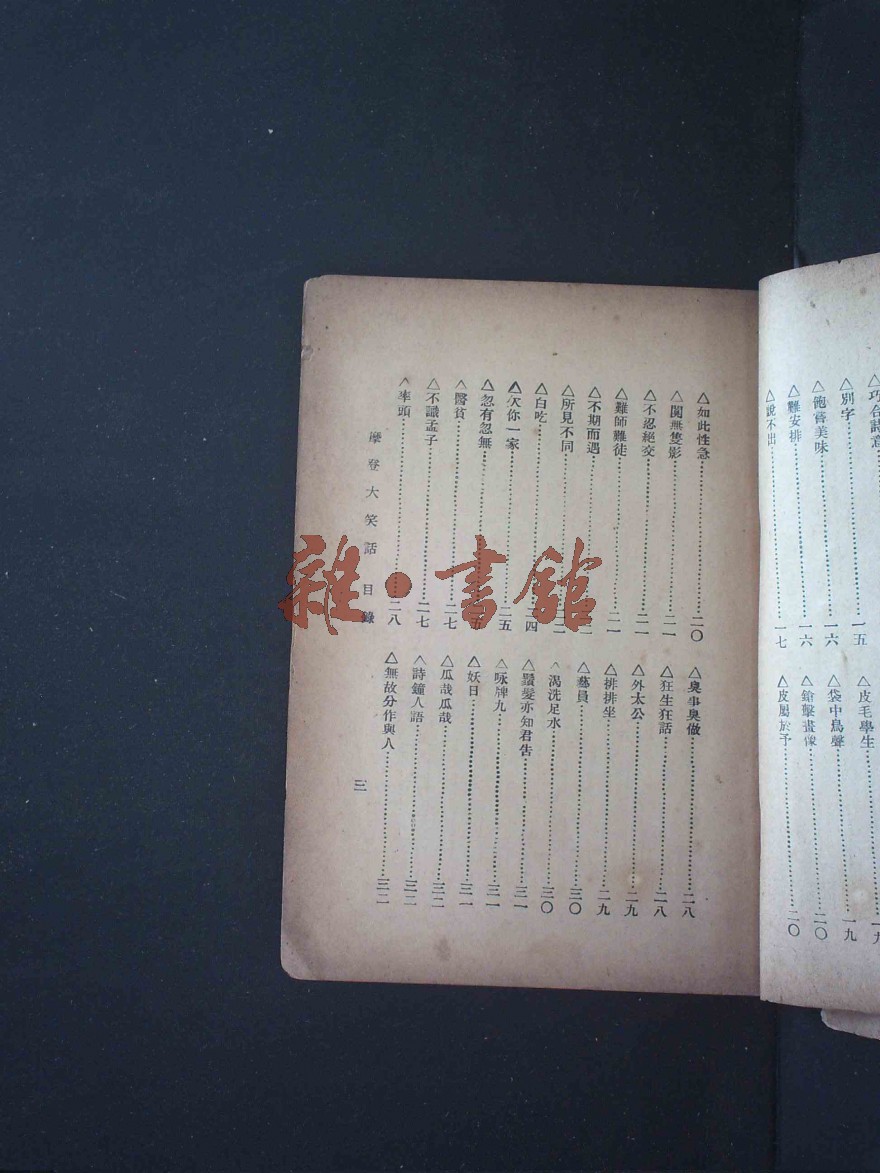 巧合詩意
△別字……一五
△飽嘗美味……一六
△難安排……一六
△說不出……一七
△皮毛學生……一九
△袋中鳥聲……一九
△鎗擊畫像……二〇
△皮屬於予……二〇
△如此性急……二〇
△闃無隻影……二一
△不忍絕交……二一
△難師難徒……二一
△不期而遇
△所見不同
△白吃……二四
△欠你一家……二五
△忽有忽無
△醫貧……二七
△不識孟子……二七
△率頭……二八
△臭事臭做……二八
△狂生狂話……二八
△外太公……二九
△排排坐……二九
△藝員……三〇
△渴洗足水……三〇
△鬚髮亦知君吿……三一
△咏牌九……三一
△妖日……三一
△瓜哉瓜哉……三二
△詩鐘人語……三二
△無故分作與人……三二
摩登大笑話 目錄
三
雜·書館